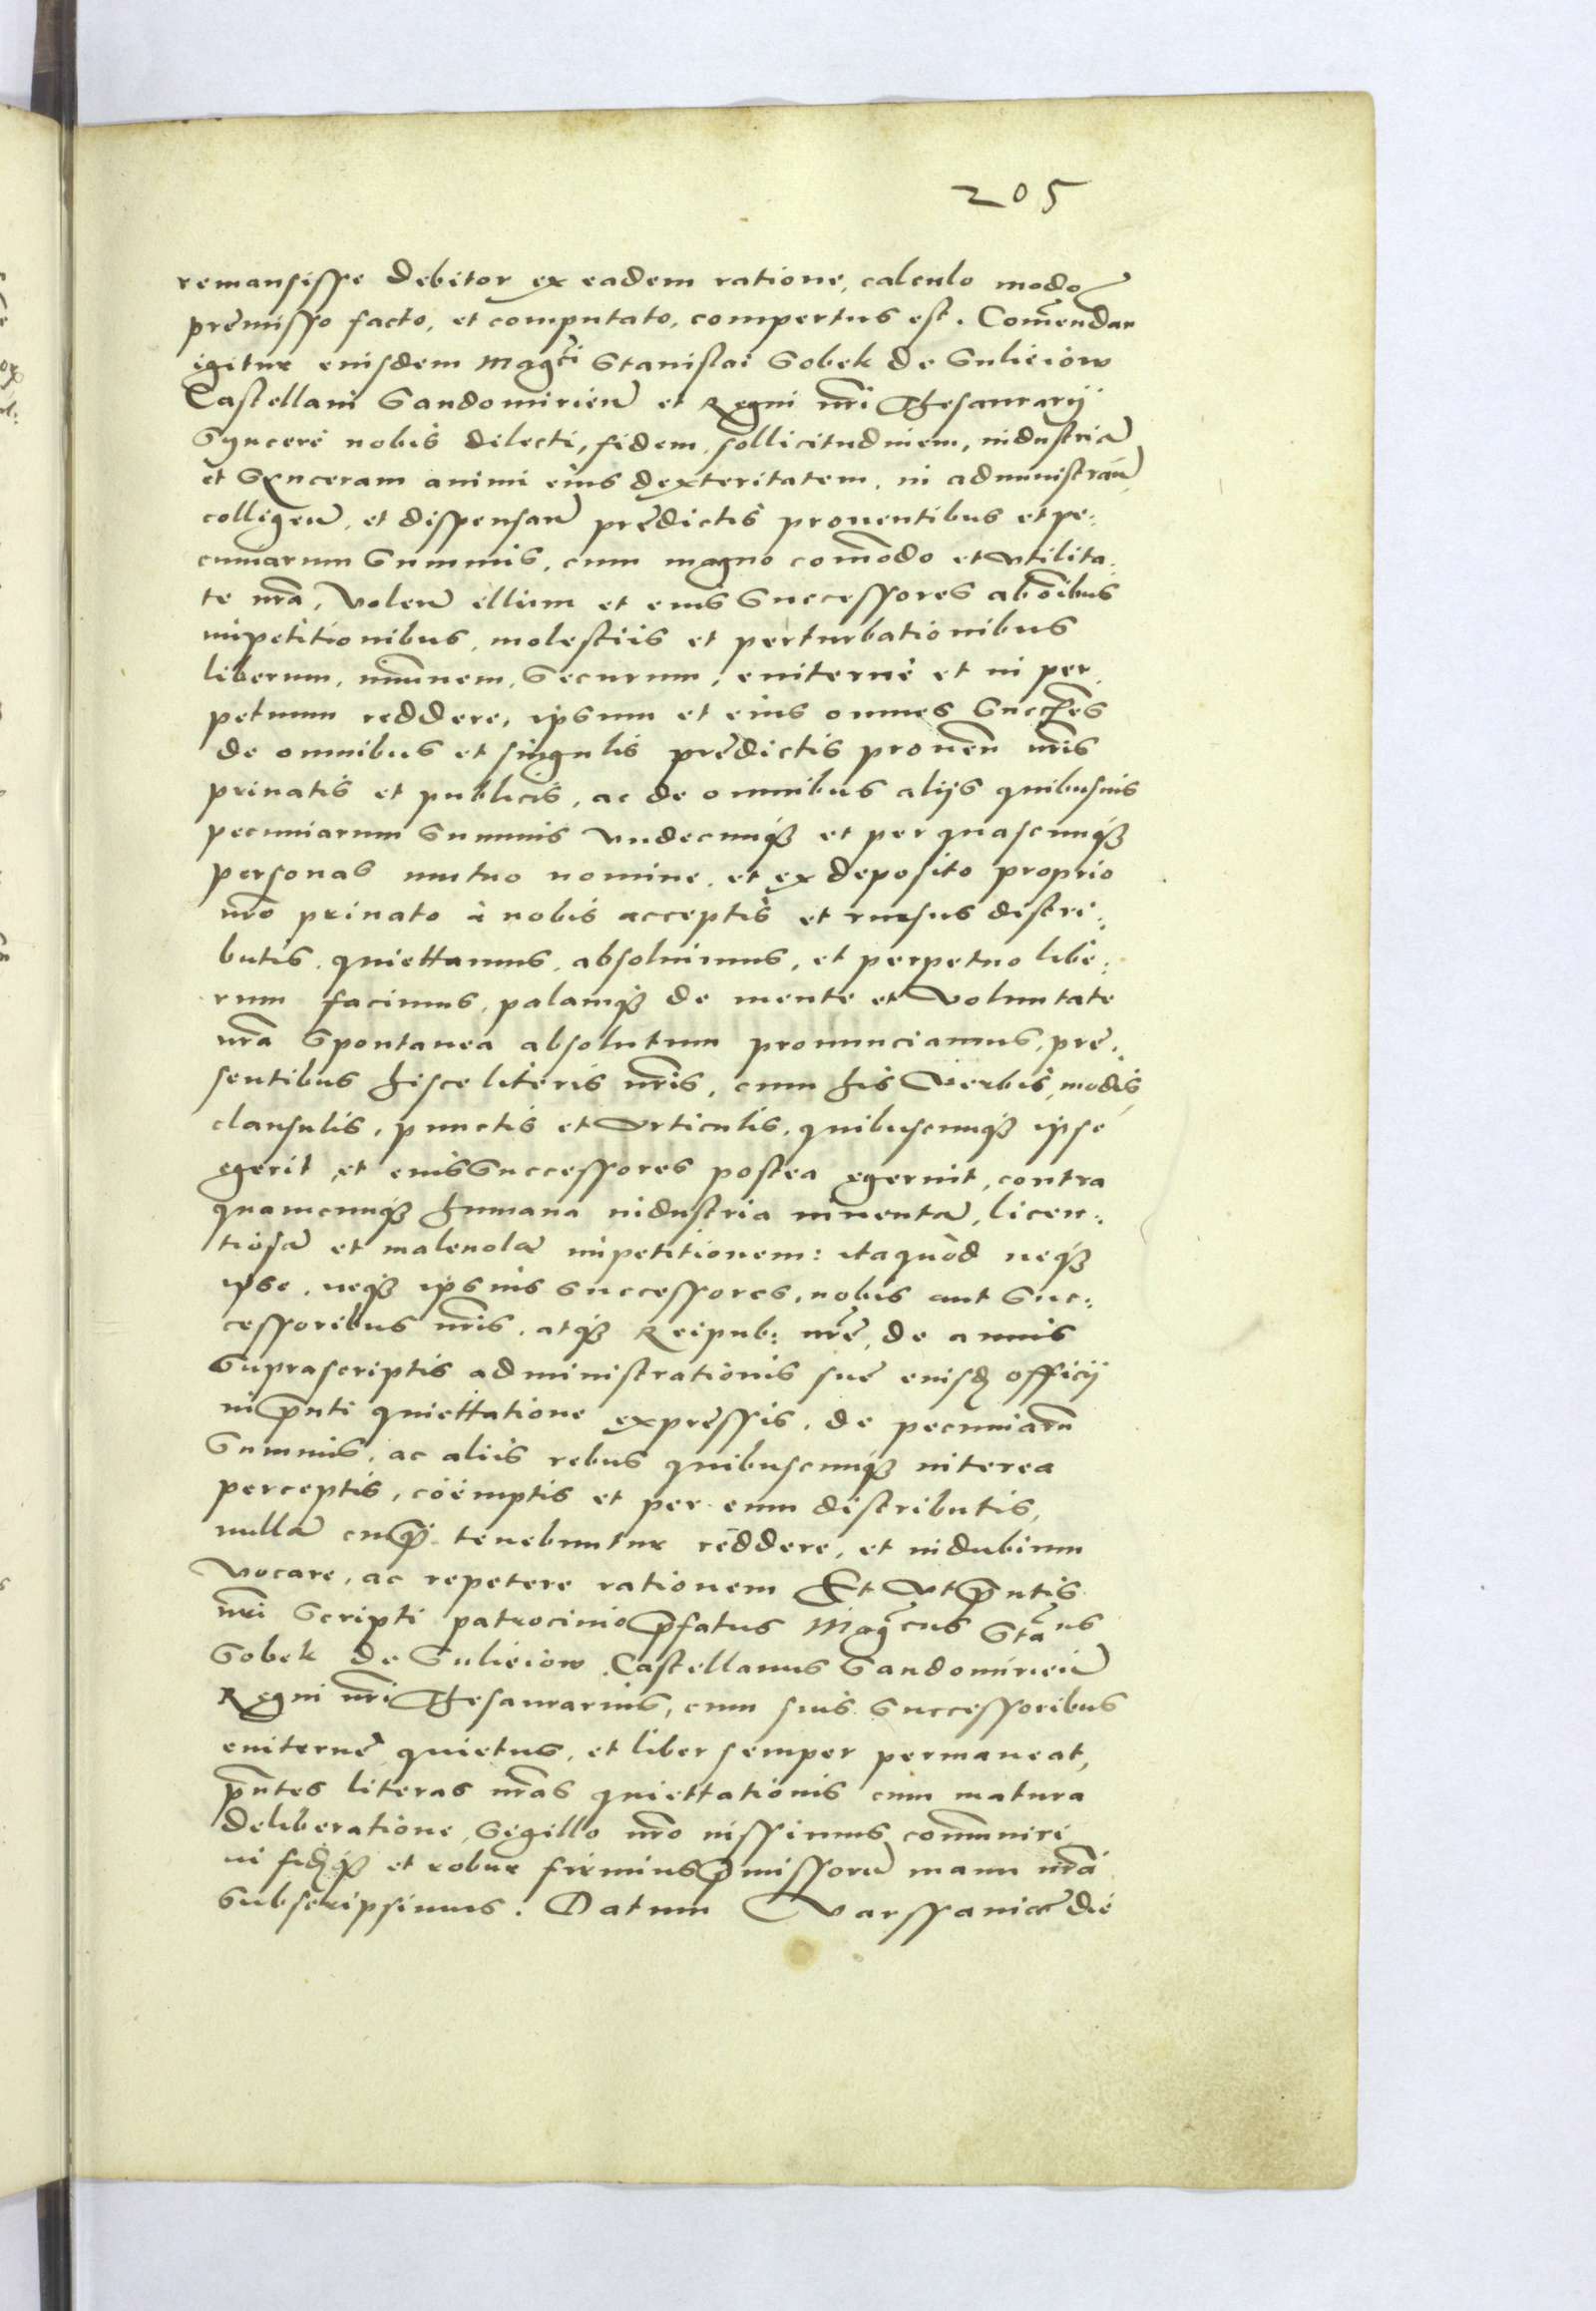 205
remansisse debitor ex eadem ratione, calculo modo
premisso facto, et computato, compertus est. Comendan
igitur eiusdem Mag:ci Stanislai Sobek de Sulieiow
Castellani Sandomirien et Regni nri Thesaurarij
Syncere nobis dilecti, fidem, sollicitudinem, industria
et Synceram animi eius dexteritatem, in administran
colligen, et dispensan predictis prouentibus et pe:
cuniarum Summis, cum magno comodo et vtilita:
te nra, Volen illum et eius Successores ab oibus
impetitionibus, molestiis et perturbationibus
liberum, imunem, Securum, euiterne et in per:
petuum reddere, ipsum et eius omnes Succes
de omnibus et singulis predictis prouen nris
priuatis et publicis, ac de omnibus alijs quibusuis
pecuniarum Summis vndecunq et per quascunq
personas mutuo nomine, et ex deposito proprio
nro priuato à nobis acceptis et rursus distri:
butis, quiettamus, absoluimus, et perpetuo libe:
rum facimus, palamq de mente et Voluntate
nra Spontanea absolutum pronunciamus, pre:
sentibus hisce literis nris, cum his Verbis, modis,
clausulis, punctis et Articulis, quibuscunq ipse
egerit et eius Successores postea egerint, contra
quamcunq humana industria inuenta, licen:
tiosa et maleuola impetitionem: ita quòd neq
ipse, neq ipsius successores, nobis aut Suc:
cessoribus nris, atq Reipub: nre, de annis
Suprascriptis administrationis sue eiusd officij
in pnti quiettatione expressis, de pecuniaru
Summis, ac aliis rebus quibuscunq interea
perceptis, coëmptis et per eum distributis,
nulla cuiq tenebuntur reddere, et in dubium
vocare, ac repetere rationem Et vt pntis
nri Scripti patrocinio pfatus Mag:cus Sta:us
Sobek de Sulieiow Castellanus Sandomirien
Regni nri Thesaurarius, cum suis Successoribus
euiterne quietus, et liber semper permaneat,
pntes literas nras quiettationis cum matura
deliberatione, Sigillo nro iussimus comuniri
in fidq et robur firmius pmissoru manu nra
Subscripsimus. Datum Varssauie die